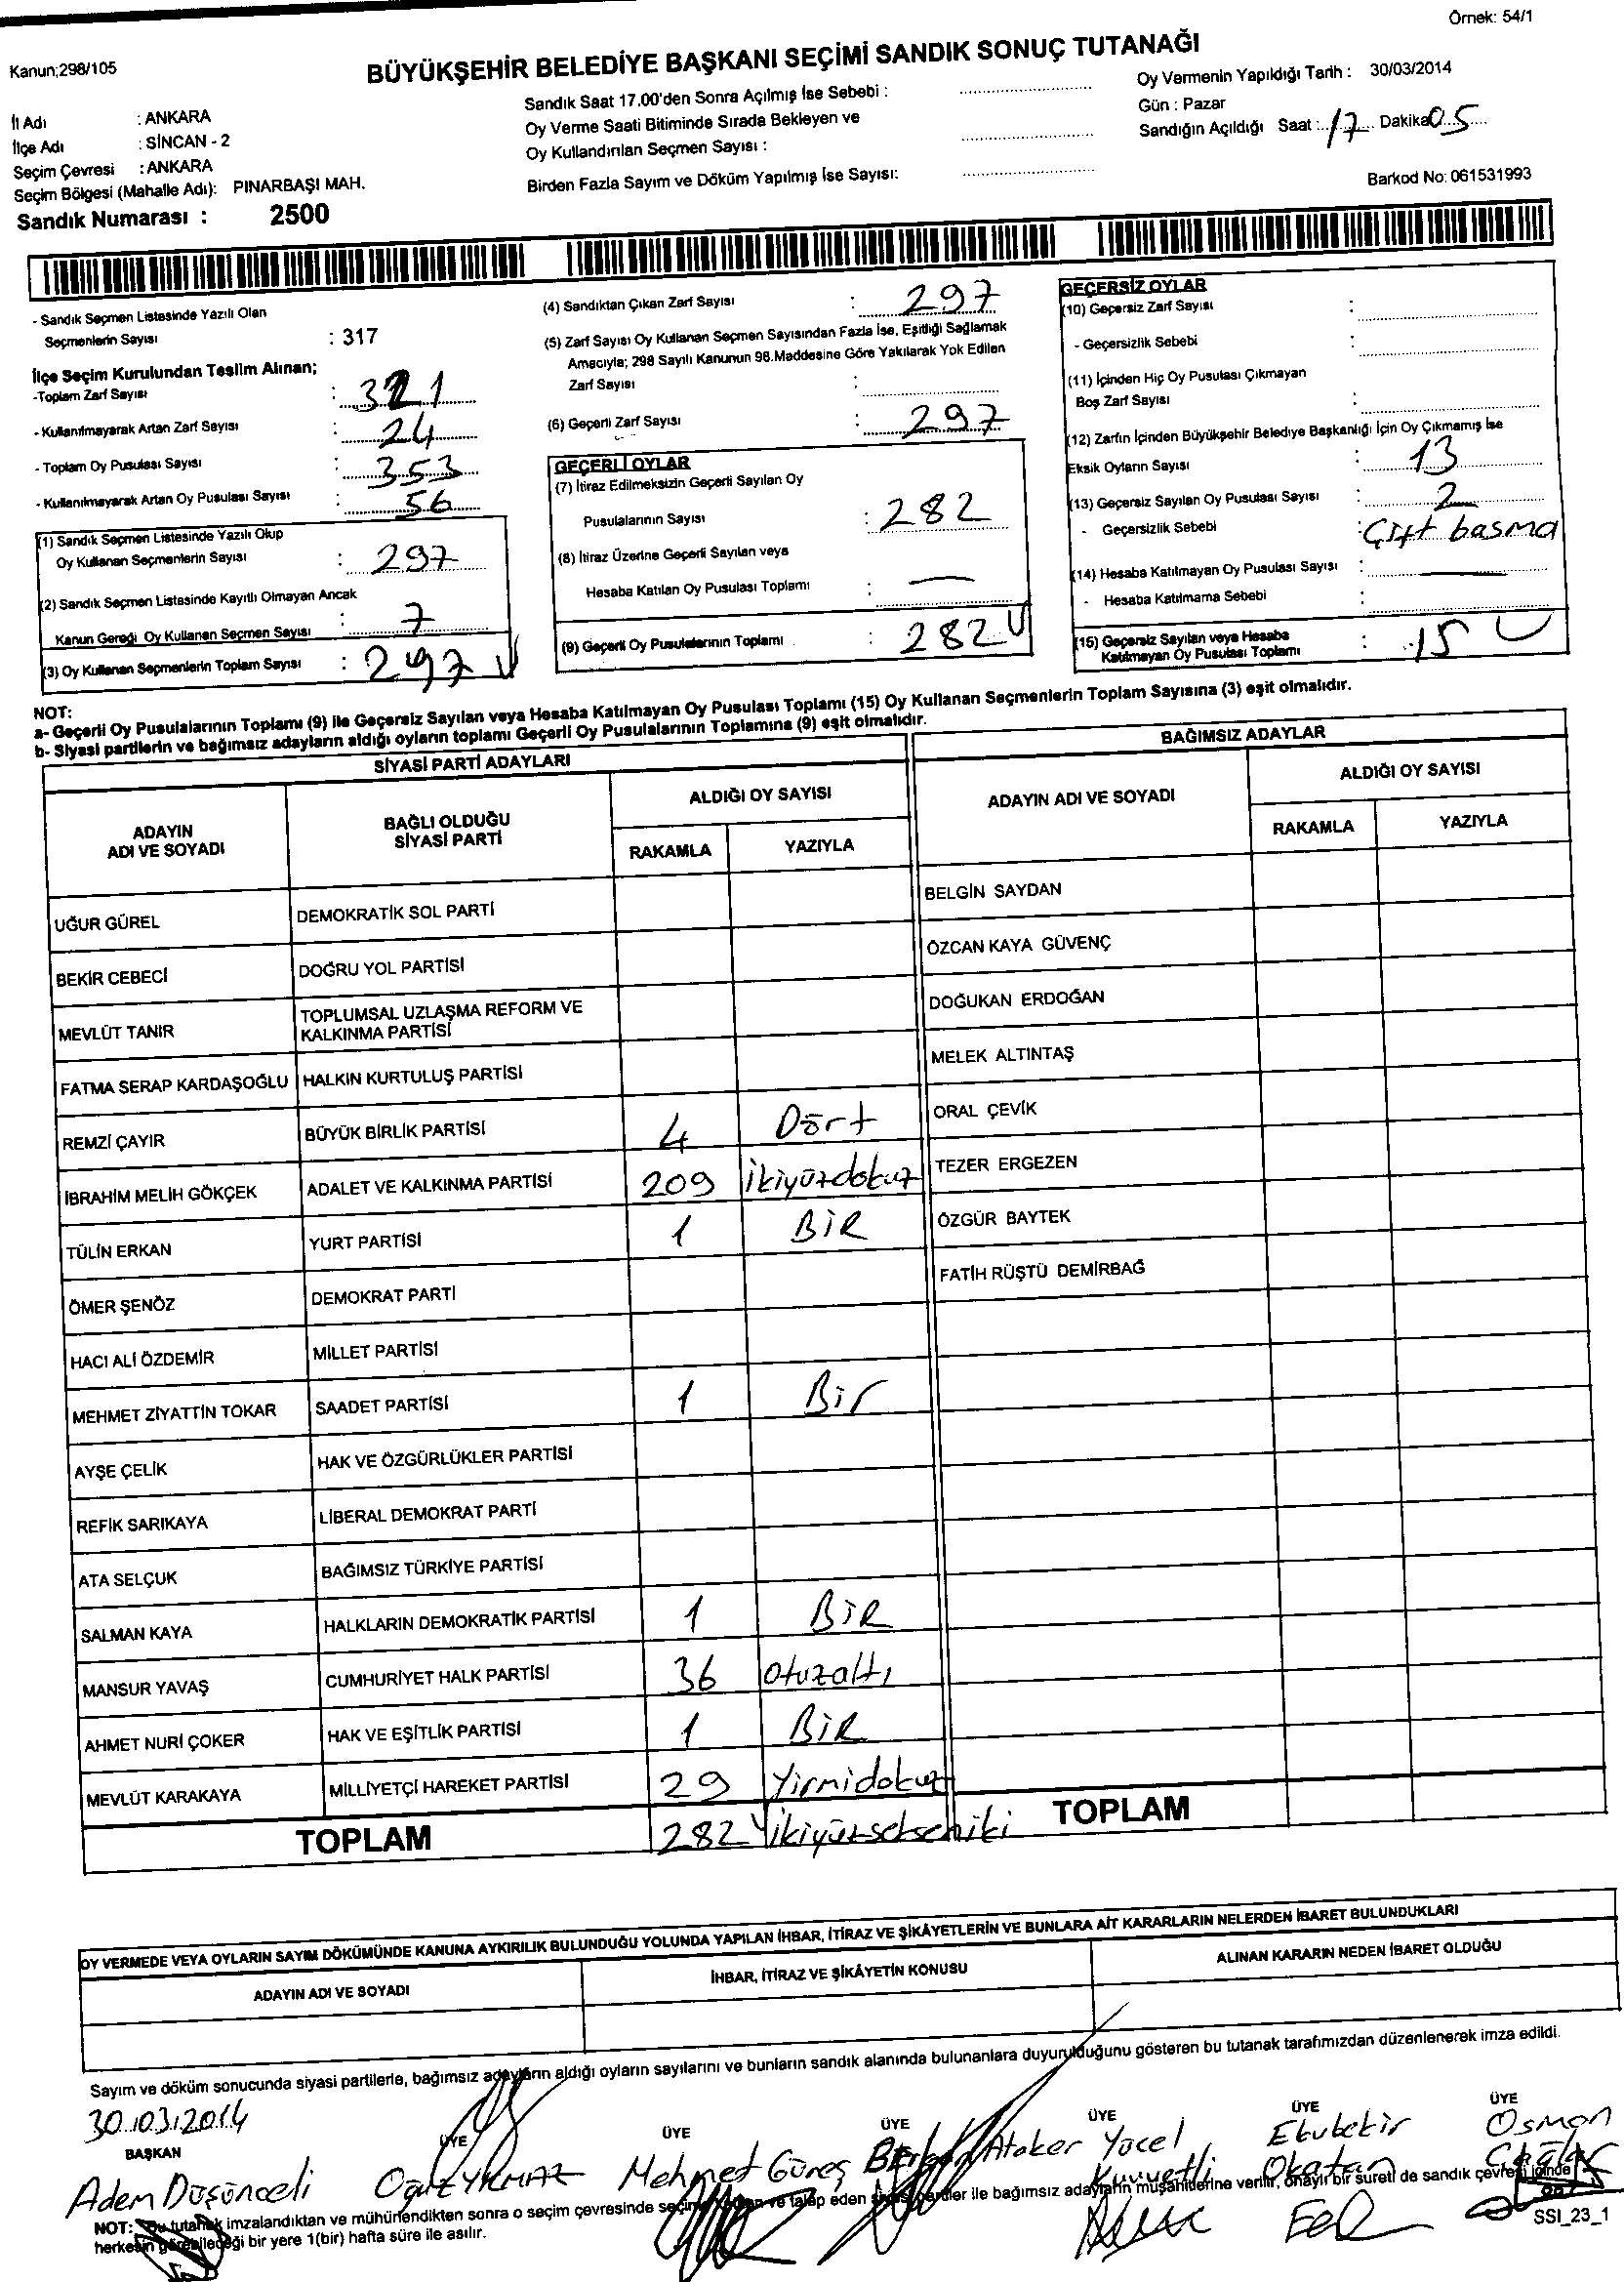 Örnek: 54/1
Kanun;298/105
BÜYÜKŞEHİR BELEDİYE BAŞKANI SEÇİMİ SANDIK SONUÇ TUTANAĞI
İl Adı : ANKARA
İlçe Adı : SİNCAN - 2
Seçim Çevresi : ANKARA
Seçim Bölgesi (Mahalle Adı): PINARBAŞI MAH.
Sandık Numarası : 2500
Sandık Saat 17.00'den Sonra Açılmış İse Sebebi :
Oy Verme Saati Bitiminde Sırada Bekleyen ve
Oy Kullandırılan Seçmen Sayısı :
Birden Fazla Sayım ve Döküm Yapılmış İse Sayısı:
Oy Vermenin Yapıldığı Tarih : 30/03/2014
Gün : Pazar
Sandığın Açıldığı Saat : 17 Dakika 05
Barkod No: 061531993
- Sandık Seçmen Listesinde Yazılı Olan
Seçmenlerin Sayısı : 317
İlçe Seçim Kurulundan Teslim Alınan;
-Toplam Zarf Sayısı : 321
- Kullanılmayarak Artan Zarf Sayısı : 24
- Toplam Oy Pusulası Sayısı : 353
- Kullanılmayarak Artan Oy Pusulası Sayısı : 56
(1) Sandık Seçmen Listesinde Yazılı Olup
Oy Kullanan Seçmenlerin Sayısı : 297
(2) Sandık Seçmen Listesinde Kayıtlı Olmayan Ancak
Kanun Gereği Oy Kullanan Seçmen Sayısı : 7
(3) Oy Kullanan Seçmenlerin Toplam Sayısı : 297
(4) Sandıktan Çıkan Zarf Sayısı : 297
(5) Zarf Sayısı Oy Kullanan Seçmen Sayısından Fazla İse, Eşitliği Sağlamak
Amacıyla; 298 Sayılı Kanunun 98.Maddesine Göre Yakılarak Yok Edilen
Zarf Sayısı :
(6) Geçerli Zarf Sayısı : 297
GEÇERLİ OYLAR
(7) İtiraz Edilmeksizin Geçerli Sayılan Oy
Pusulalarının Sayısı : 282
(8) İtiraz Üzerine Geçerli Sayılan veya
Hesaba Katılan Oy Pusulası Toplamı : —
(9) Geçerli Oy Pusulalarının Toplamı : 282
GEÇERSİZ OYLAR
(10) Geçersiz Zarf Sayısı :
- Geçersizlik Sebebi :
(11) İçinden Hiç Oy Pusulası Çıkmayan
Boş Zarf Sayısı :
(12) Zarfın İçinden Büyükşehir Belediye Başkanlığı İçin Oy Çıkmamış İse
Eksik Oyların Sayısı : 13
(13) Geçersiz Sayılan Oy Pusulası Sayısı : 2
- Geçersizlik Sebebi : Çift basma
(14) Hesaba Katılmayan Oy Pusulası Sayısı : —
- Hesaba Katılmama Sebebi :
(15) Geçersiz Sayılan veya Hesaba
Katılmayan Oy Pusulası Toplamı : 15
NOT:
a- Geçerli Oy Pusulalarının Toplamı (9) ile Geçersiz Sayılan veya Hesaba Katılmayan Oy Pusulası Toplamı (15) Oy Kullanan Seçmenlerin Toplam Sayısına (3) eşit olmalıdır.
b- Siyasi partilerin ve bağımsız adayların aldığı oyların toplamı Geçerli Oy Pusulalarının Toplamına (9) eşit olmalıdır.
SİYASİ PARTİ ADAYLARI
ADAYIN ADI VE SOYADI
BAĞLI OLDUĞU SİYASİ PARTİ
ALDIĞI OY SAYISI
RAKAMLA YAZIYLA
UĞUR GÜREL DEMOKRATİK SOL PARTİ
BEKİR CEBECİ DOĞRU YOL PARTİSİ
MEVLÜT TANIR TOPLUMSAL UZLAŞMA REFORM VE KALKINMA PARTİSİ
FATMA SERAP KARDAŞOĞLU HALKIN KURTULUŞ PARTİSİ
REMZİ ÇAYIR BÜYÜK BİRLİK PARTİSİ 4 Dört
İBRAHİM MELİH GÖKÇEK ADALET VE KALKINMA PARTİSİ 209 İkiyüzdokuz
TÜLİN ERKAN YURT PARTİSİ 1 BİR
ÖMER ŞENÖZ DEMOKRAT PARTİ
HACI ALİ ÖZDEMİR MİLLET PARTİSİ
MEHMET ZİYATTİN TOKAR SAADET PARTİSİ 1 Bir
AYŞE ÇELİK HAK VE ÖZGÜRLÜKLER PARTİSİ
REFİK SARIKAYA LİBERAL DEMOKRAT PARTİ
ATA SELÇUK BAĞIMSIZ TÜRKİYE PARTİSİ
SALMAN KAYA HALKLARIN DEMOKRATİK PARTİSİ 1 BİR
MANSUR YAVAŞ CUMHURİYET HALK PARTİSİ 36 otuzaltı
AHMET NURİ ÇOKER HAK VE EŞİTLİK PARTİSİ 1 BİR
MEVLÜT KARAKAYA MİLLİYETÇİ HAREKET PARTİSİ 29 Yirmidokuz
TOPLAM 282 ikiyüzsekseniki
BAĞIMSIZ ADAYLAR
ADAYIN ADI VE SOYADI
ALDIĞI OY SAYISI
RAKAMLA YAZIYLA
BELGİN SAYDAN
ÖZCAN KAYA GÜVENÇ
DOĞUKAN ERDOĞAN
MELEK ALTINTAŞ
ORAL ÇEVİK
TEZER ERGEZEN
ÖZGÜR BAYTEK
FATİH RÜŞTÜ DEMİRBAĞ
TOPLAM
OY VERMEDE VEYA OYLARIN SAYIM DÖKÜMÜNDE KANUNA AYKIRILIK BULUNDUĞU YOLUNDA YAPILAN İHBAR, İTİRAZ VE ŞİKÂYETLERİN VE BUNLARA AİT KARARLARIN NELERDEN İBARET BULUNDUKLARI
ADAYIN ADI VE SOYADI
İHBAR, İTİRAZ VE ŞİKÂYETİN KONUSU
ALINAN KARARIN NEDEN İBARET OLDUĞU
Sayım ve döküm sonucunda siyasi partilerle, bağımsız adayların aldığı oyların sayılarını ve bunların sandık alanında bulunanlara duyurulduğunu gösteren bu tutanak tarafımızdan düzenlenerek imza edildi.
30.03.2014
BAŞKAN ÜYE ÜYE ÜYE ÜYE ÜYE ÜYE
Adem Düşünceli
Oğuz YILMAZ
Mehmet Güneş
Ataker
Yücel Kuvvetli
Ebubekir Okatan
Osman
NOT: Bu tutanak imzalandıktan ve mühürlendikten sonra o seçim çevresinde seçime ve talep eden siyasi partiler ile bağımsız adayların müşahitlerine verilir, onaylı bir sureti de sandık çevresi içinde
herkesin görebileceği bir yere 1(bir) hafta süre ile asılır.
SSI_23_1